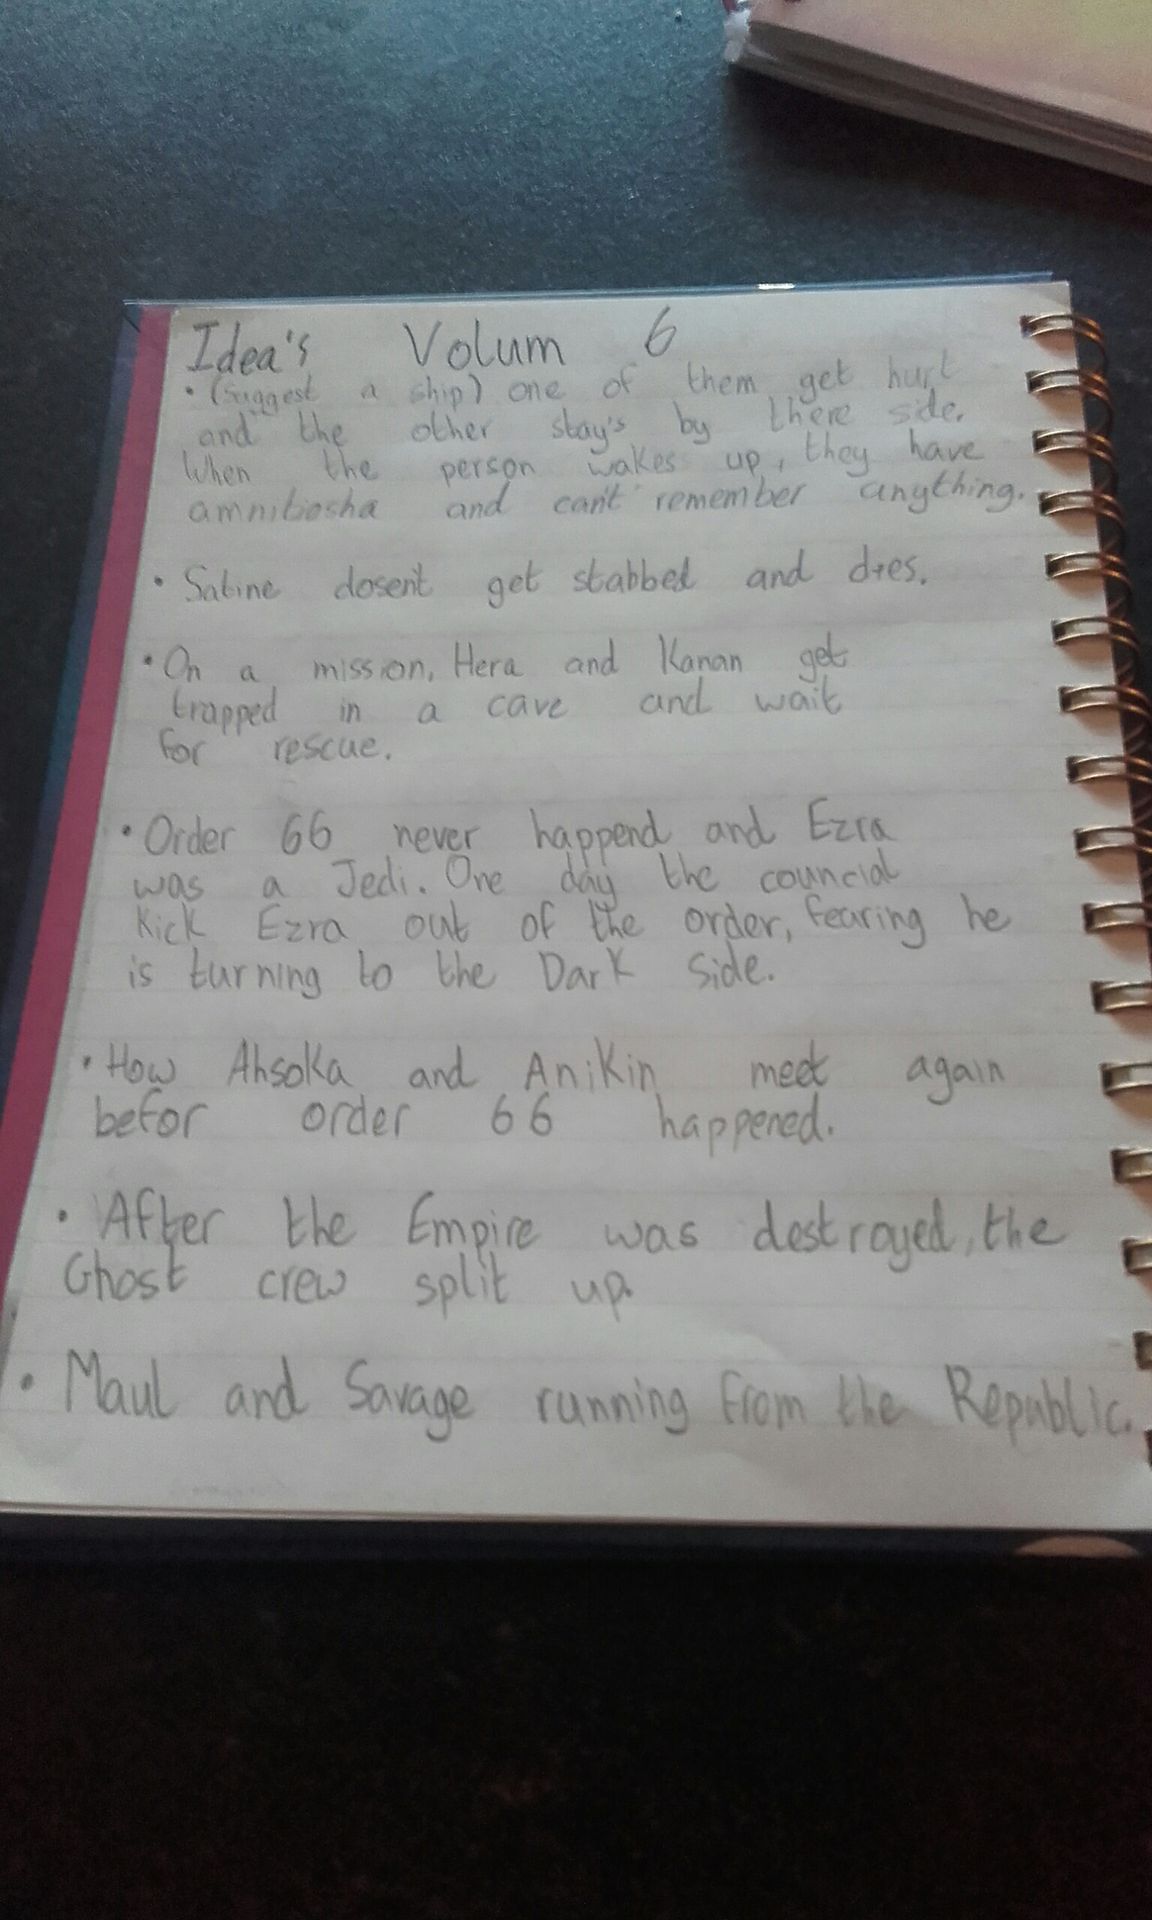 Idea's Volum 6
• (Suggest a ship) one of them get hurt
and the other stay's by there side.
When the person wakes up, they have
amnibosha and can't remember anything.
• Satine dosent get stabbed and dies.
• On a mission, Hera and Kanan get
trapped in a cave and wait
for rescue.
• Order 66 never happend and Ezra
was a Jedi. One day the councial
Kick Ezra out of the order, fearing he
is turning to the Dark Side.
• How Ahsoka and Anikin meet again
befor order 66 happened.
• After the Empire was destroyed, the
Ghost crew split up.
• Maul and Savage running from the Republic.